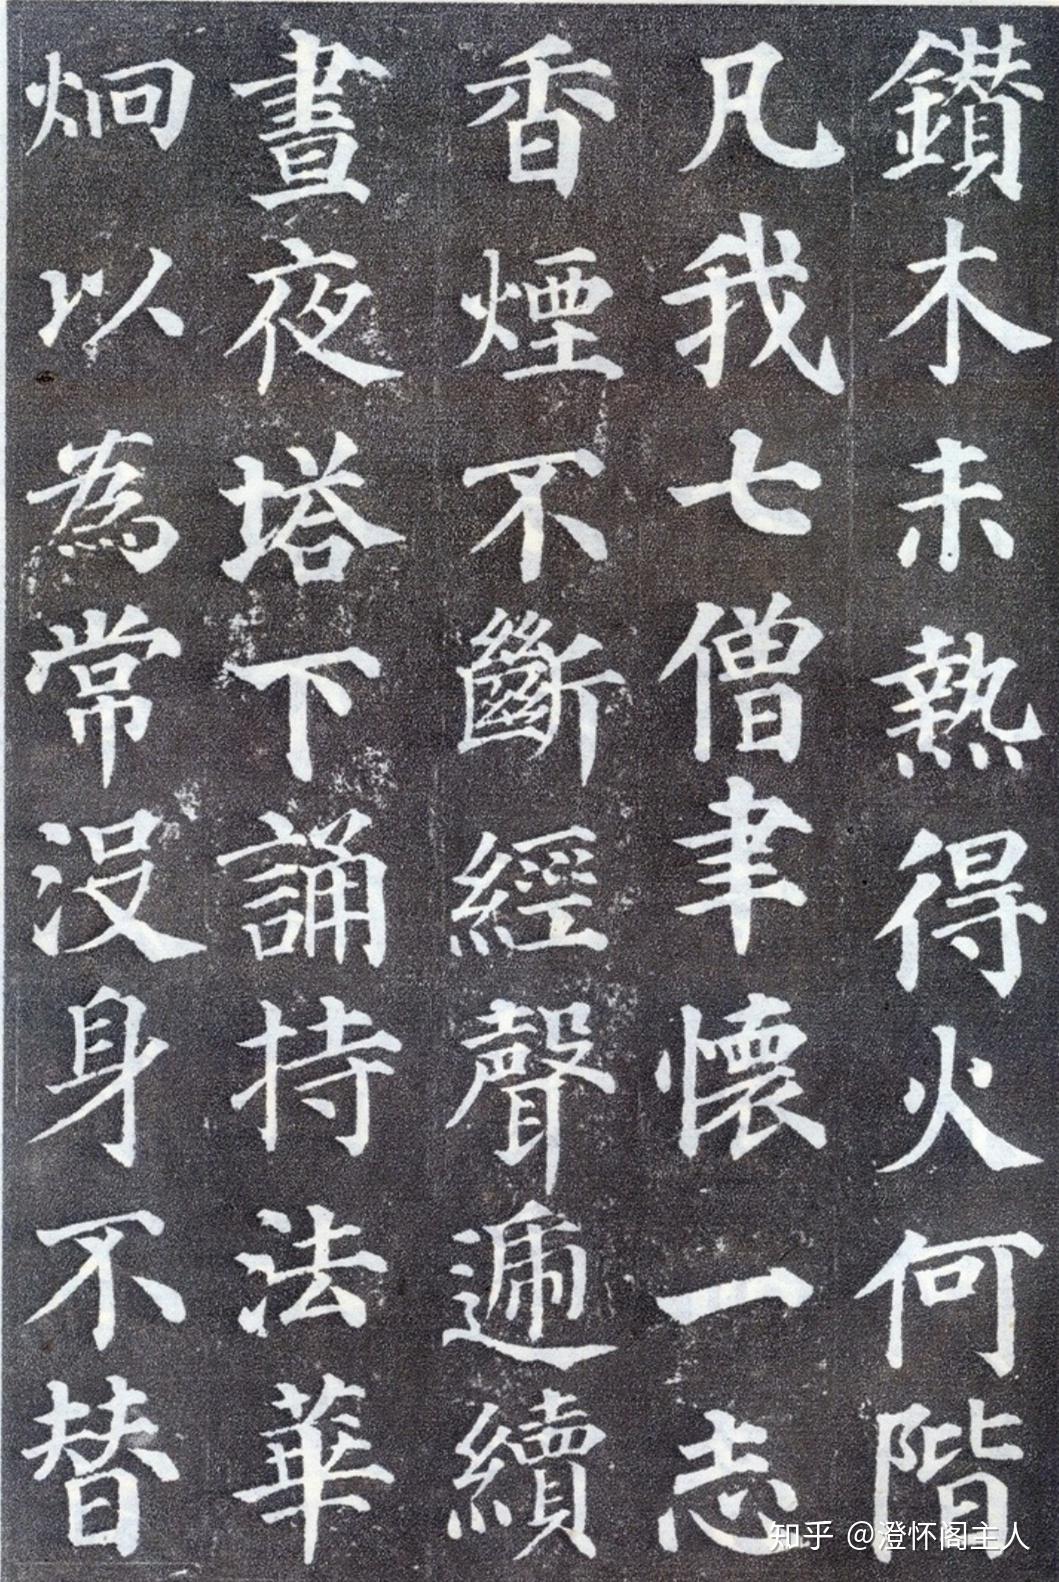 鑚木未熱得火何階
凡我七僧聿懷一志
香煙不斷經聲遞續
晝夜塔下誦持法華
炯以為常没身不替
知乎 @澄怀阁主人